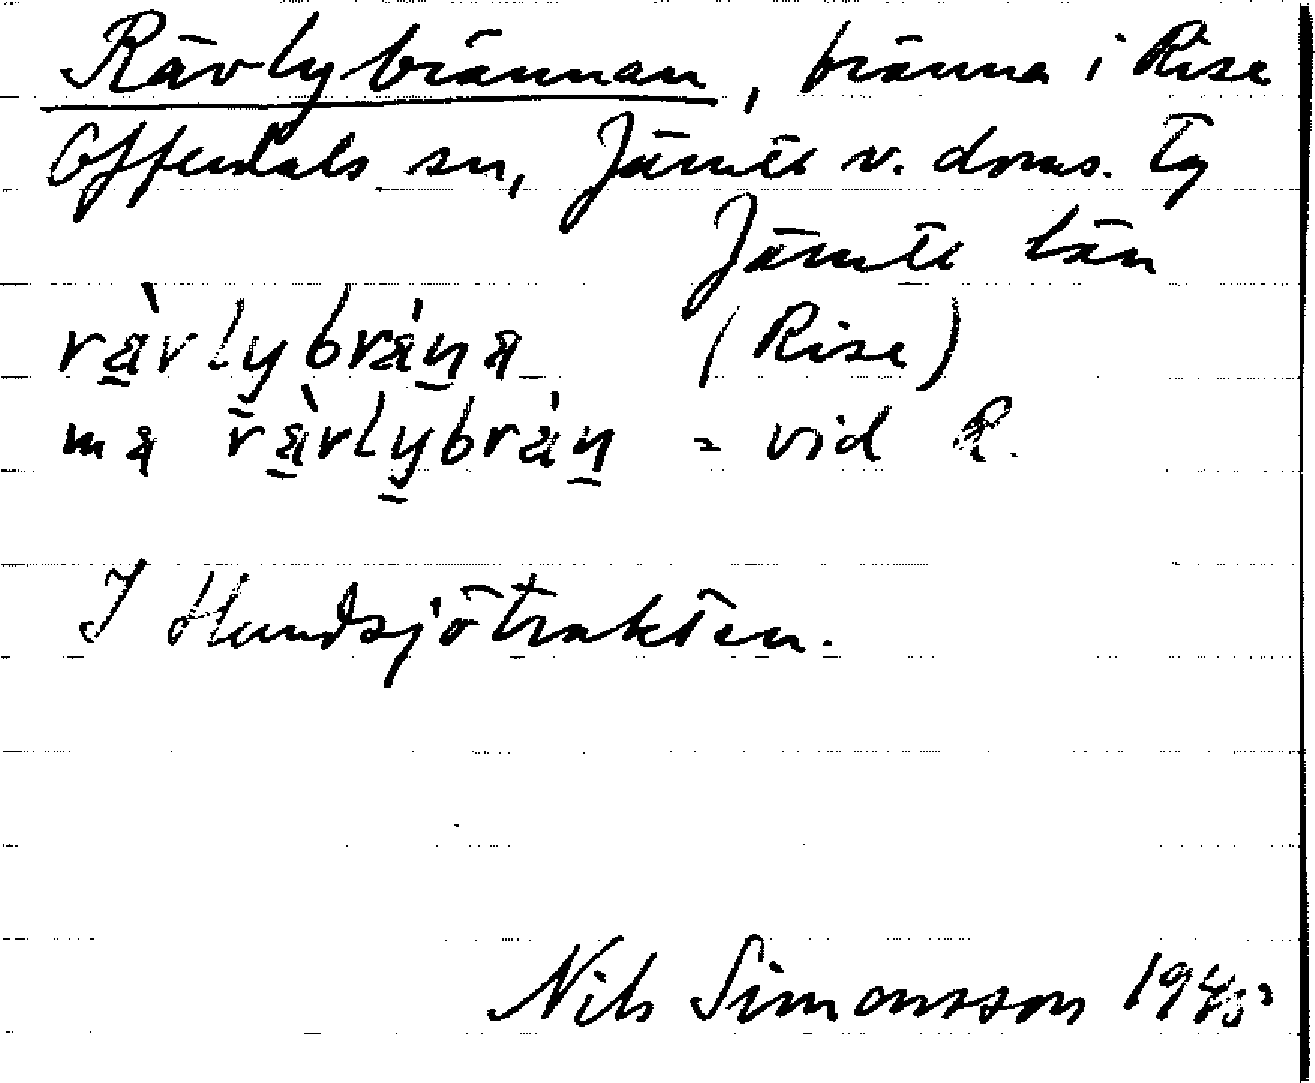 Rävlybrännan, bränna i Rise
Offerdals sn, Jämtl v. doms. tg
Jämtl län
rävlybräna (Rise)
ma rävlybrän = vid R.
I Hundsjötrakten.
Nils Simonsson